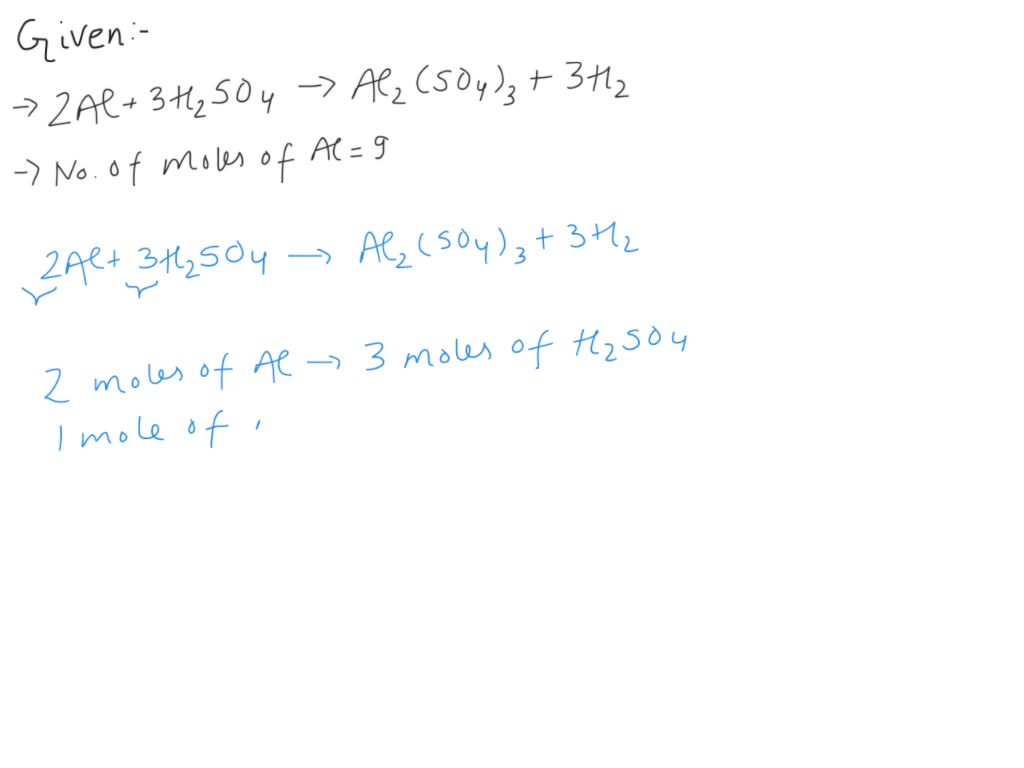 Given:-
→ 2Al + 3H₂SO₄ → Al₂(SO₄)₃ + 3H₂
→ No. of moles of Al = 9
2Al + 3H₂SO₄ → Al₂(SO₄)₃ + 3H₂
2 moles of Al → 3 moles of H₂SO₄
1 mole of